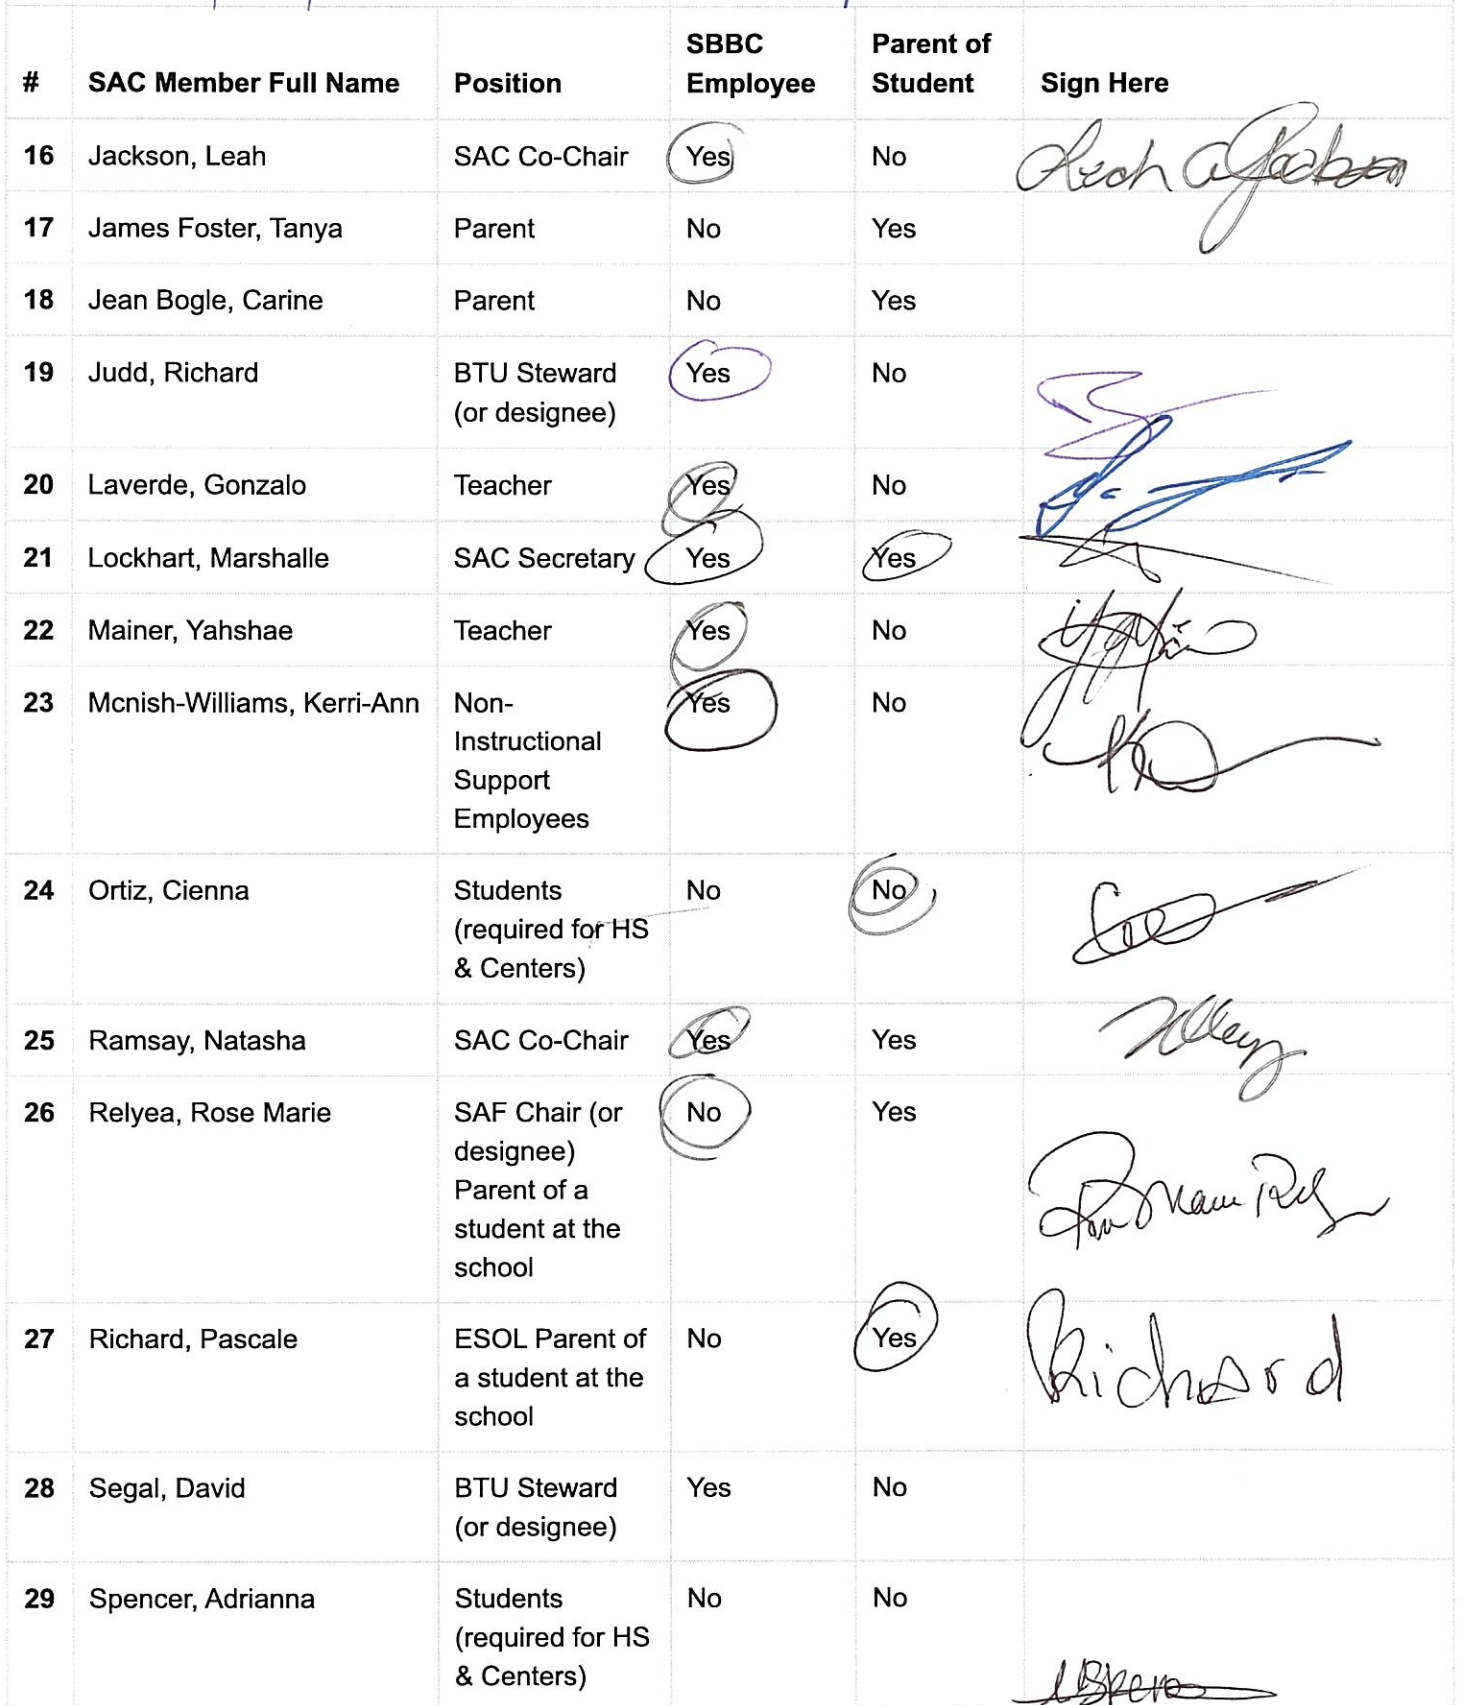 # SAC Member Full Name Position SBBC Employee Parent of Student Sign Here
16 Jackson, Leah SAC Co-Chair Yes No Leah A Jackson
17 James Foster, Tanya Parent No Yes
18 Jean Bogle, Carine Parent No Yes
19 Judd, Richard BTU Steward Yes No
(or designee)
20 Laverde, Gonzalo Teacher Yes No
21 Lockhart, Marshalle SAC Secretary Yes Yes
22 Mainer, Yahshae Teacher Yes No
23 Mcnish-Williams, Kerri-Ann Non- Yes No
Instructional
Support
Employees
24 Ortiz, Cienna Students No No
(required for HS
& Centers)
25 Ramsay, Natasha SAC Co-Chair Yes Yes
26 Relyea, Rose Marie SAF Chair (or No Yes
designee)
Parent of a
student at the
school
27 Richard, Pascale ESOL Parent of No Yes Richard
a student at the
school
28 Segal, David BTU Steward Yes No
(or designee)
29 Spencer, Adrianna Students No No
(required for HS
& Centers)